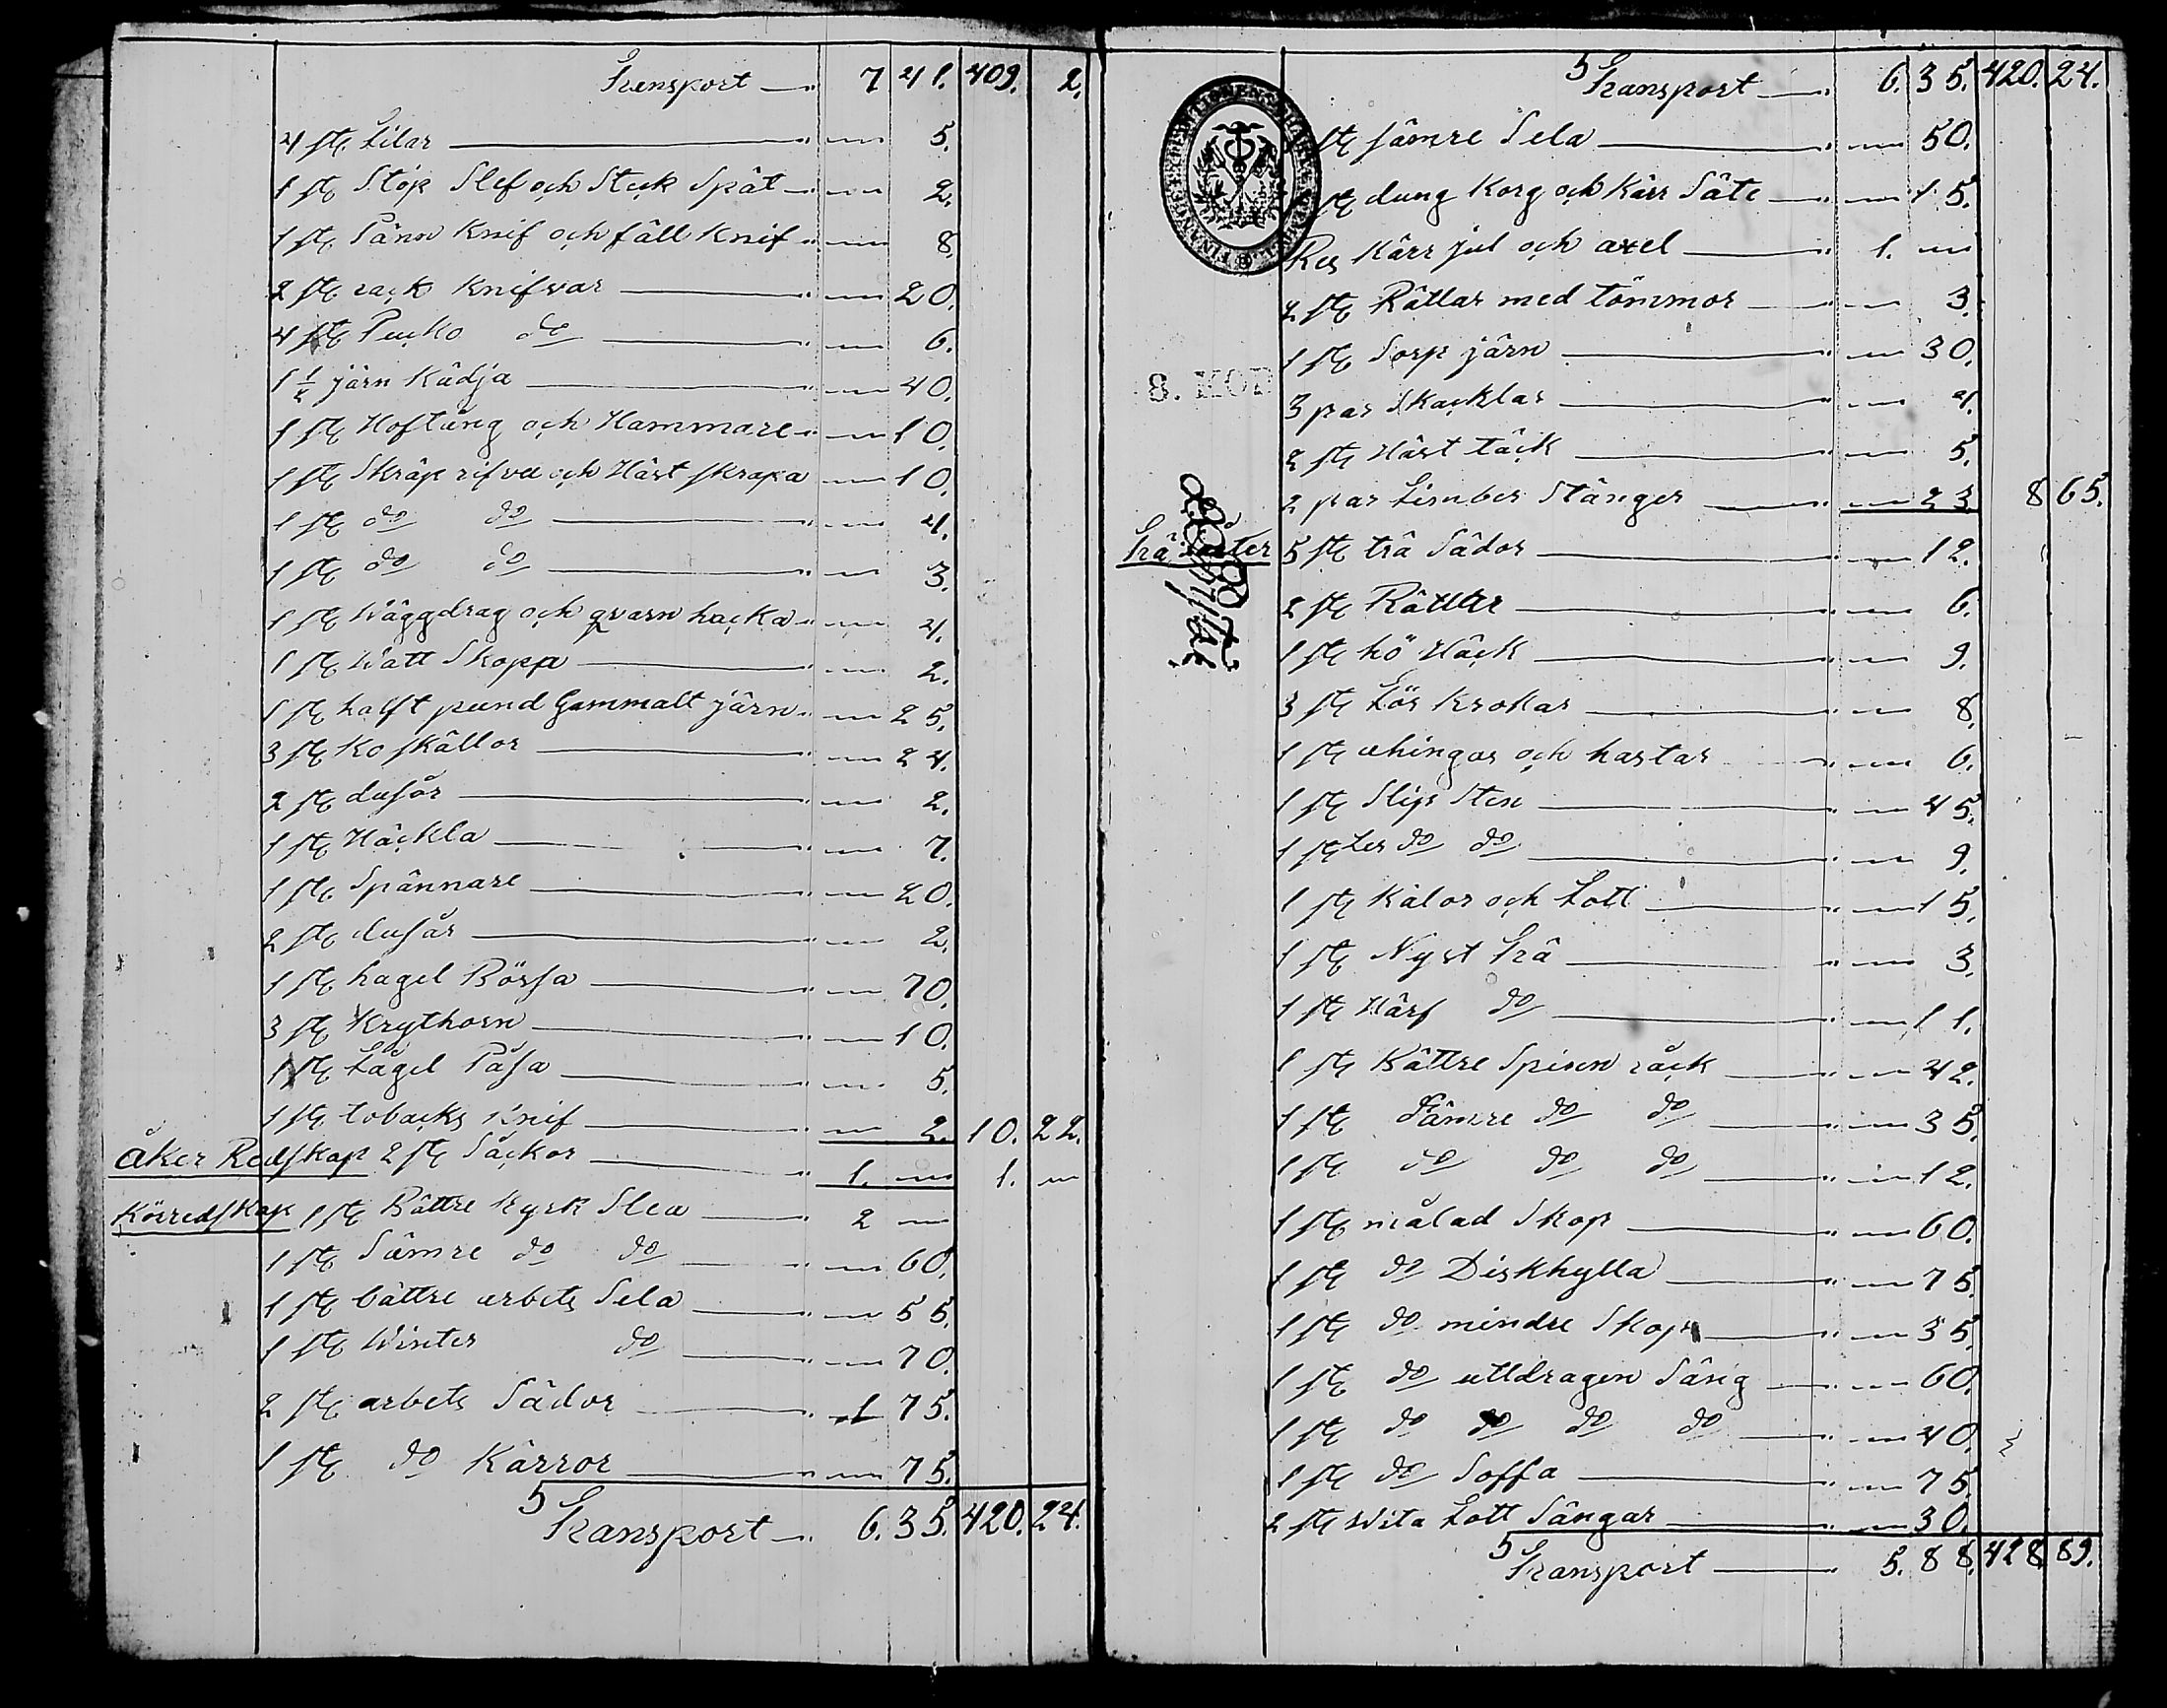 Transport — 7 41. 409. 2.
4 st Filar — " 5.
1 st Stöp Slef och Steck Spåt — " 2.
1 st Pänn Knif och fäll Knif — " 8.
2 st rack Knifvar — " 20.
4 st Pucko do — " 6.
1 1/2 järn Kådja — " 40.
1 st Hoftång och Hammare — " 10.
1 st Skråp rifva och Häst skrapa — " 10.
1 st do do — " 4.
1 st do do — " 3.
1 st Wäggdrag och qvarn hacka — " 4.
1 st Watt Skopa — " 2.
1 st halft pund Gammalt järn — " 25.
3 st Ko skällor — " 24.
2 st dusör — " 2.
1 st Häckla — " 7.
1 st Spännare — " 20.
2 st dusår — " 2.
1 st hagel Bössa — " 70.
3 st Krythorn — " 10.
1 st Hagel Påsa — " 5.
1 st tobacks Knif — " 2. 10. 22.
åker Redskap 2 st Säckor — 1. " 1. "
Körredskap 1 st Bättre Kyrk Slea — 2 "
1 st Sämre do do — " 60.
1 st bättre arbets Sela — " 55.
1 st Winter do — " 70.
2 st arbets Slädor — 1 75.
1 st do Kärror — " 75.
5 Transport — 6. 35. 420. 24.
5 Transport — 6. 35. 420. 24.
st sämre Sela — " 50.
st dung Korg och Kärr Säte — " 15.
Res Kärr jul och axel — 1. "
2 st Rättar med tömmor — " 3.
1 st Sorp järn — " 30.
8. KOP
3 par Skacklar — " 4.
2 st Häst täck — " 5.
2 par Timber Stänger — " 23 8 65.
5 st trä Sådor — " 12.
2 st Rättter — " 6.
1 st hö Häck — " 9.
3 st Lör Krokar — " 8.
1 st ehingar och hastar — " 6.
1 st Slip Sten — " 45.
1 st Ler do do — " 9.
1 st Kålor och Lott — " 15.
1 st Nyst Trä — " 3.
1 st Härf do — " 11.
1 st Bättre Spinn råck — " 42.
1 st Sämre do do — " 35.
1 st do do do — " 12.
1 st målad Skop — " 60.
1 st do Diskhylla — " 75.
1 st do mindre Skop — " 35.
1 st do uttdragen Säng — " 60.
1 st do do do do — " 40.
1 st do Soffa — " 75.
2 st Wita Lott Sängar — " 30.
5 Transport — 5. 88. 428 89.